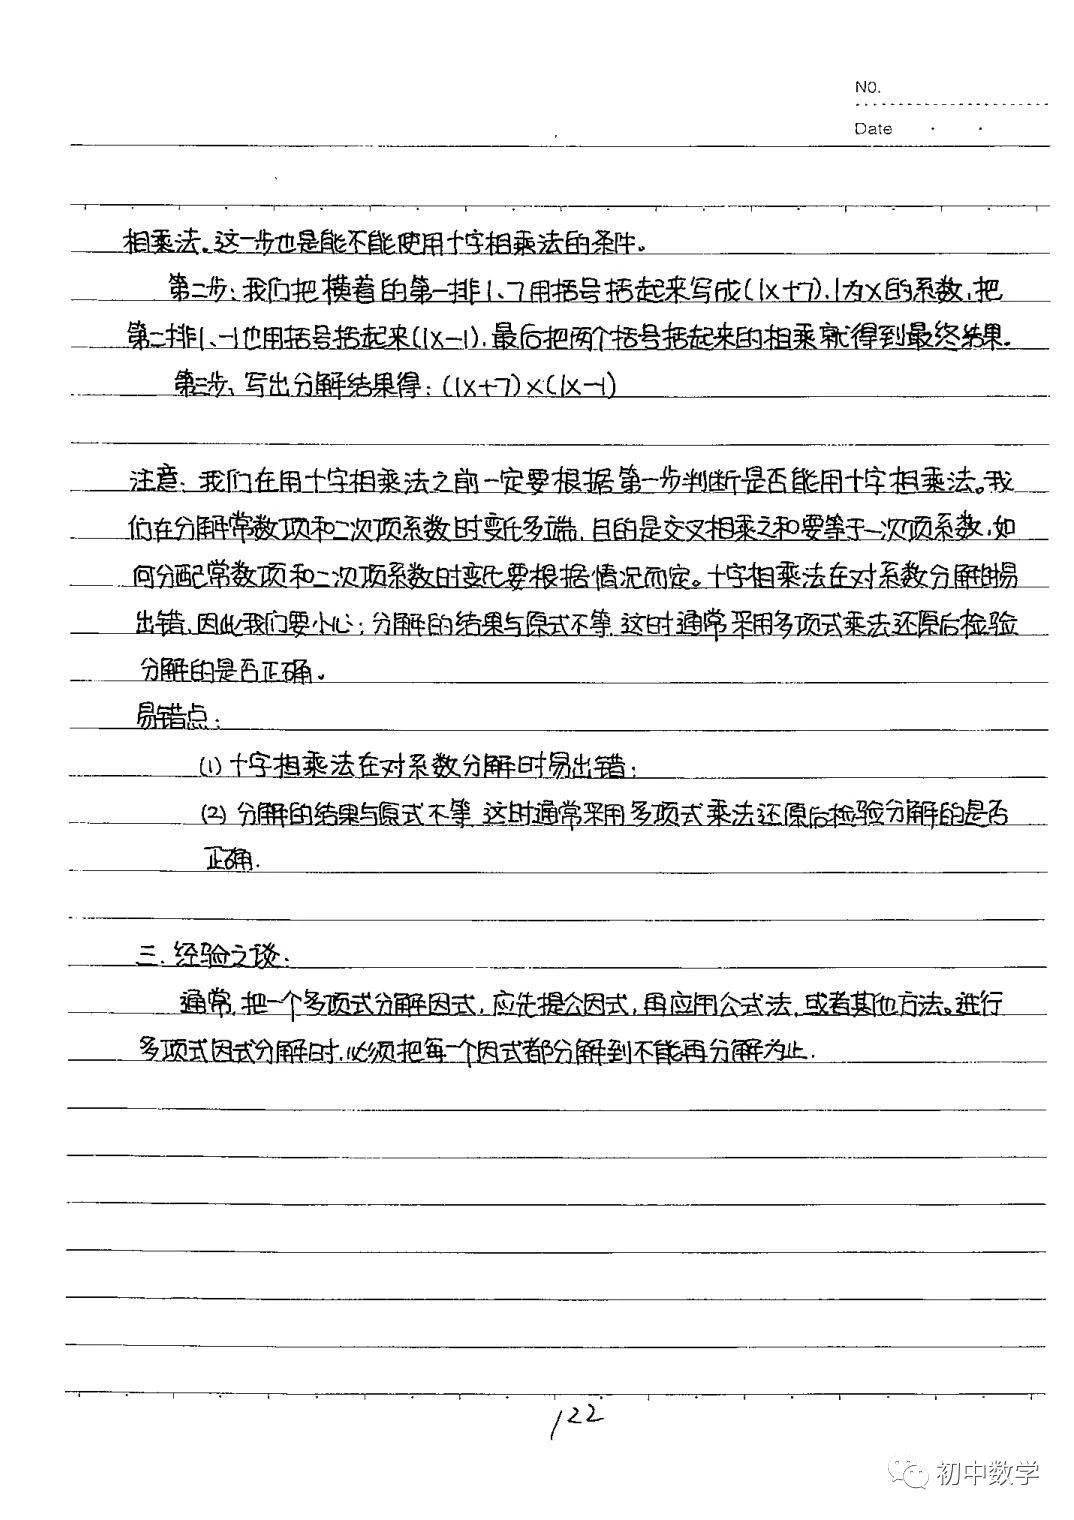 NO.
Date
相乘法。这一步也是能不能使用十字相乘法的条件。
第二步:我们把横着的第一排1、7用括号括起来写成(1x+7),1为x的系数,把
第二排1、-1也用括号括起来(1x-1),最后把两个括号括起来的相乘就得到最终结果。
第三步、写出分解结果得:(1x+7)×(1x-1)
注意:我们在用十字相乘法之前一定要根据第一步判断是否能用十字相乘法。我
们在分解常数项和二次项系数时变化多端,目的是交叉相乘之和要等于一次项系数,如
何分配常数项和二次项系数时变化要根据情况而定。十字相乘法在对系数分解时易
出错,因此我们要小心;分解的结果与原式不等,这时通常采用多项式乘法还原后检验
分解的是否正确。
易错点:
(1)十字相乘法在对系数分解时易出错;
(2)分解的结果与原式不等,这时通常采用多项式乘法还原后检验分解的是否
正确.
三.经验之谈:
通常,把一个多项式分解因式,应先提公因式,再应用公式法,或者其他方法。进行
多项式因式分解时,必须把每一个因式都分解到不能再分解为止.
122
初中数学